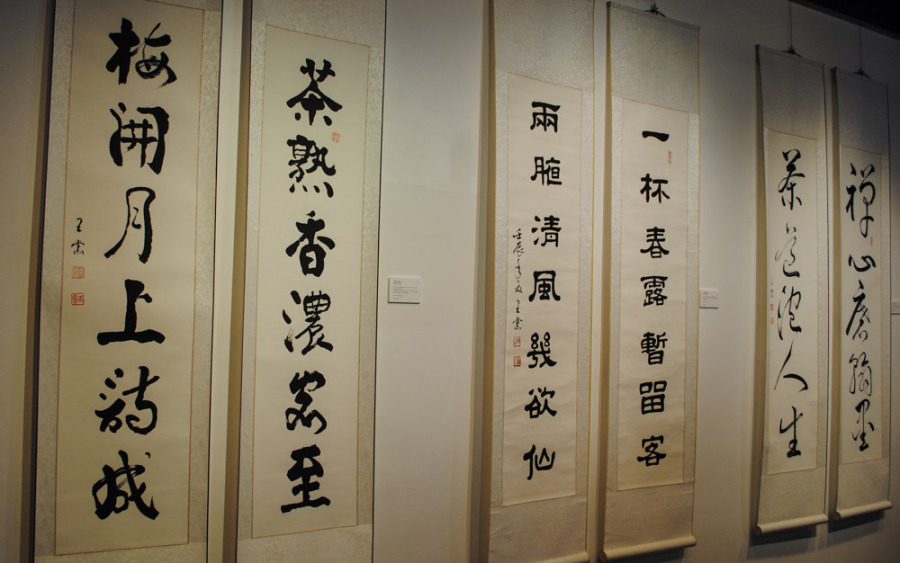 禪心磨翰墨
茶道泡人生
一杯春露暫留客
兩腋清風幾欲仙
茶熟香濃客至
梅開月上詩成